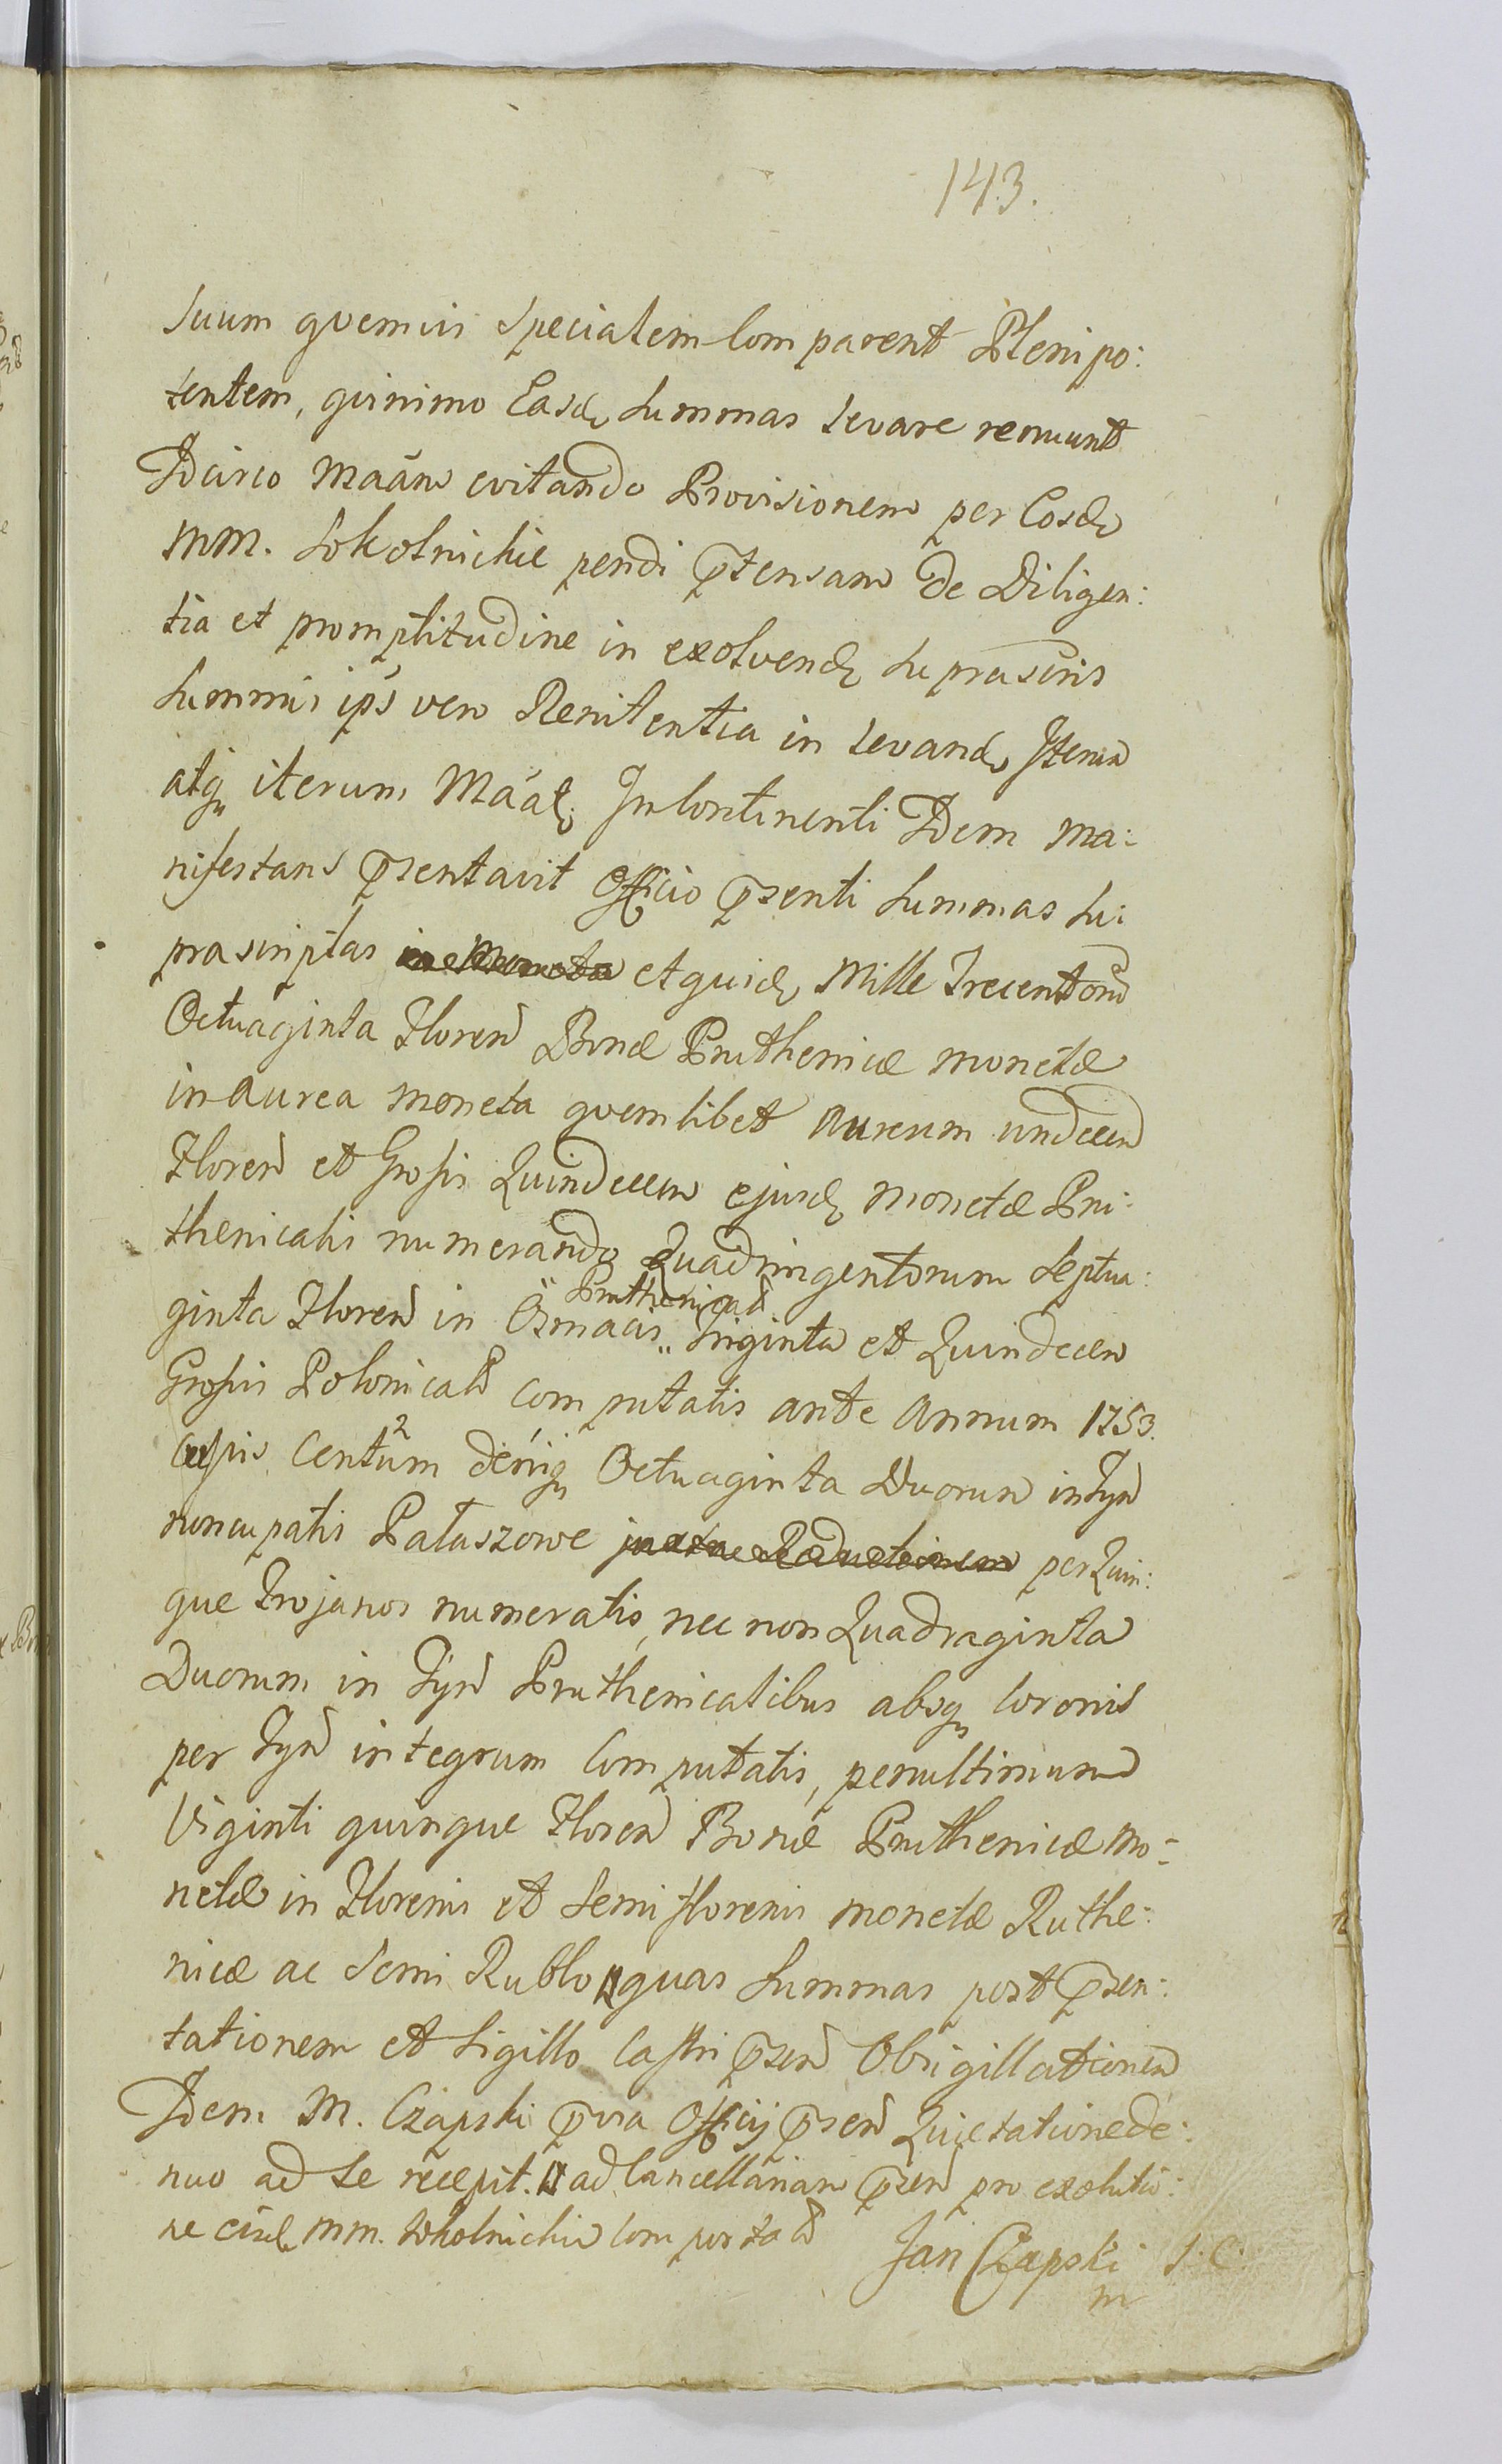 143.
Suum quemvis Specialem Comparent Plenipo:
tentem, quinimo Easd. Summas levare renuunt
Idcirco Maãm evitando Provisionem per Eosd.
MM. Sokolnickie pendi p̃tensam de Diligen:
tia et promptitudine in exolvend. supra scris
Summis ips vero Renitentia in levand. Iterum
atq. iterum Maãt. In Continenti Idem Ma:
nifestans p̃sentavit Officio p̃senti Summas Su:
prascriptas in Moneta et quid. Mille Trecentorũ
Octuaginta Floren Bonæ Pruthenicæ monetæ
in Aurea moneta quemlibet Aureum undecem
Floren et Grossis Quindecem ejusd. monetæ Pru:
thenicalis numerando Quadringentorum Septua:
ginta Floren in Osmacis „ Pruthenicalt Triginta et Quindecem
Grossis Polonicalt computatis ante Annum 1753.
cussis Centum deniq. Octuaginta Duorum in Tyn
nuncupatis Pataszowe juxta Reductionem per Quin:
que Trojanos numeratis, nec non Quadraginta
Duorum in Tyn Pruthenicalibus absq. Coronis
per Tyn integrum Computatis, penultimum
Viginti quinque Floren Bonæ Pruthenicæ Mo:
netæ in Florenis et Semiflorenis monetæ Ruthe:
nicæ ac Semi Rublo quas Summas post p̃sen:
tationem et Sigillo Castri p̃sen Obsigillationem
Idem M. Czapski p̃via Officij p̃sen Quietatione de:
nuo ad Se recepit. ad Cancellariam p̃sen pro exolutio:
ne eisd. MM. Sokolnickie comportat
Jan Czapski S: C:
m